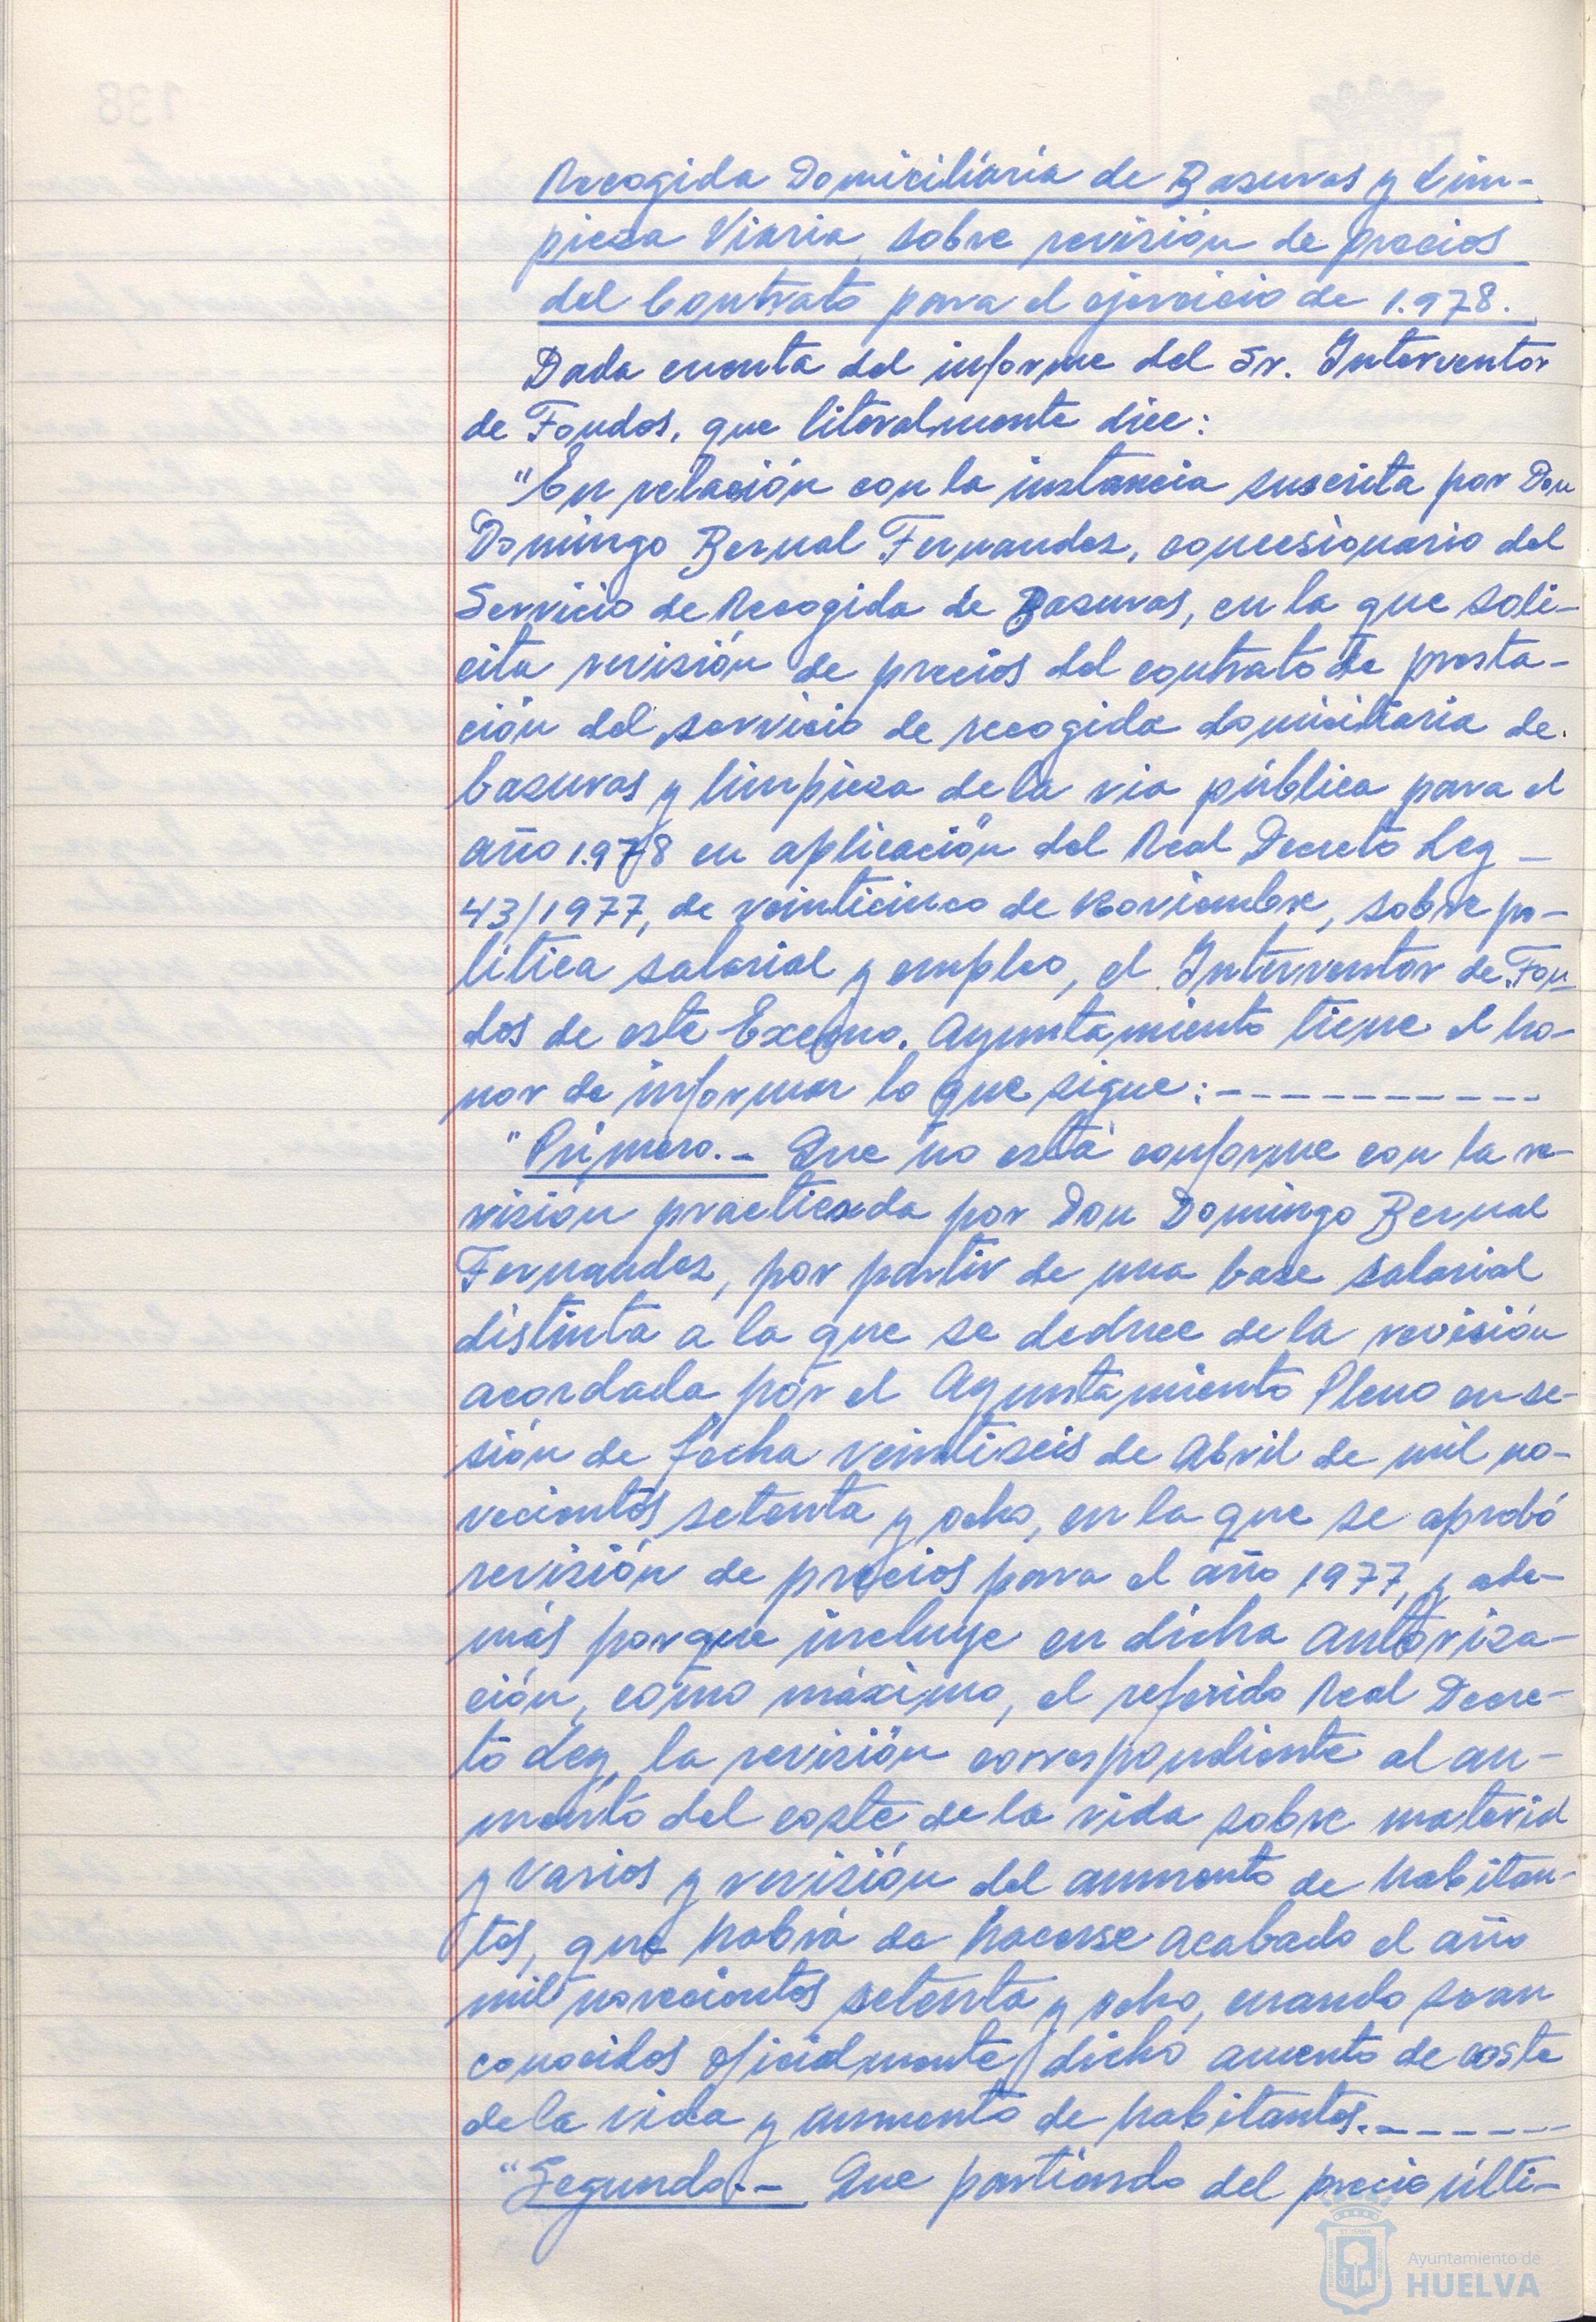 Recogida Domiciliaria de Basuras y Lim-
pieza Viaria, sobre revisión de precios
del Contrato para el ejercicio de 1.978.
Dada cuenta del informe del Sr. Interventor
de Fondos, que literalmente dice:
"En relación con la instancia suscrita por Don
Domingo Bernal Fernandez, concesionario del
Servicio de Recogida de Basuras, en la que soli-
cita revisión de precios del contrato de presta-
ción del servicio de recogida domiciliaria de
basuras y limpieza de la via pública para el
año 1.978 en aplicación del Real Decreto Ley -
43/1977, de veinticinco de Noviembre, sobre po-
litica salarial y empleo, el Interventor de Fon-
dos de este Excmo. Ayuntamiento tiene el ho-
nor de informar lo que sigue:-----------
"Primero.- Que no está conforme con la re-
visión practicada por Don Domingo Bernal
Fernandez, por partir de una base salarial
distinta a la que se deduce de la revisión
acordada por el Ayuntamiento Pleno en se-
sión de fecha veintiseis de Abril de mil no-
vecientos setenta y ocho, en la que se aprobó
revisión de precios para el año 1977, y ade-
más porque incluye en dicha autoriza-
ción, como máximo, el referido Real Decre-
to Ley, la revisión correspondiente al au-
mento del coste de la vida sobre material
y varios y revisión del aumento de habitan-
tes, que habrá de hacerse acabado el año
mil novecientos setenta y ocho, cuando sean
conocidos oficialmente dicho amento de coste
de la vida y aumento de habitantes.------
"Segundo.- Que partiendo del precio últi-
Ayuntamiento de
HUELVA